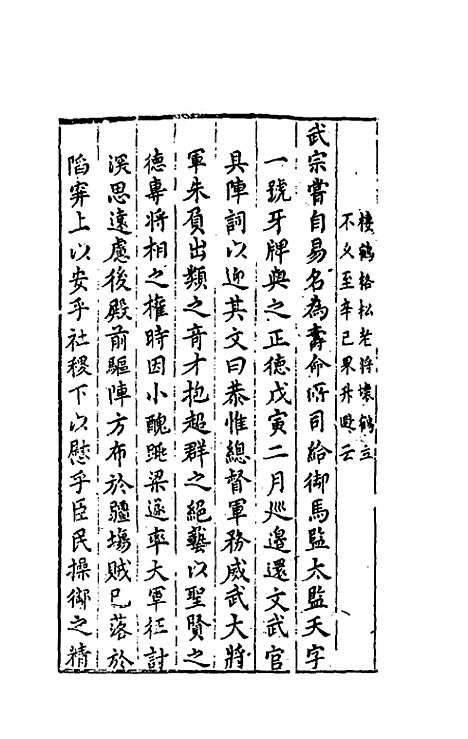 棲鶴格松老將壞鶴立
不乆至辛己果升遐云
武宗嘗自易名為壽命所司給御馬監太監天字
一號牙牌與之正德戊寅二月廵邉還文武官
具陣詞以迎其文曰恭惟總督軍務威武大將
軍朱負出類之竒才抱超群之絕藝以聖賢之
德專將相之權時因小醜跳梁遂率大軍征討
深思遠慮後殿前驅陣方布於疆塲賊已落於
䧟穽上以安乎社稷下以慰乎臣民操御之精